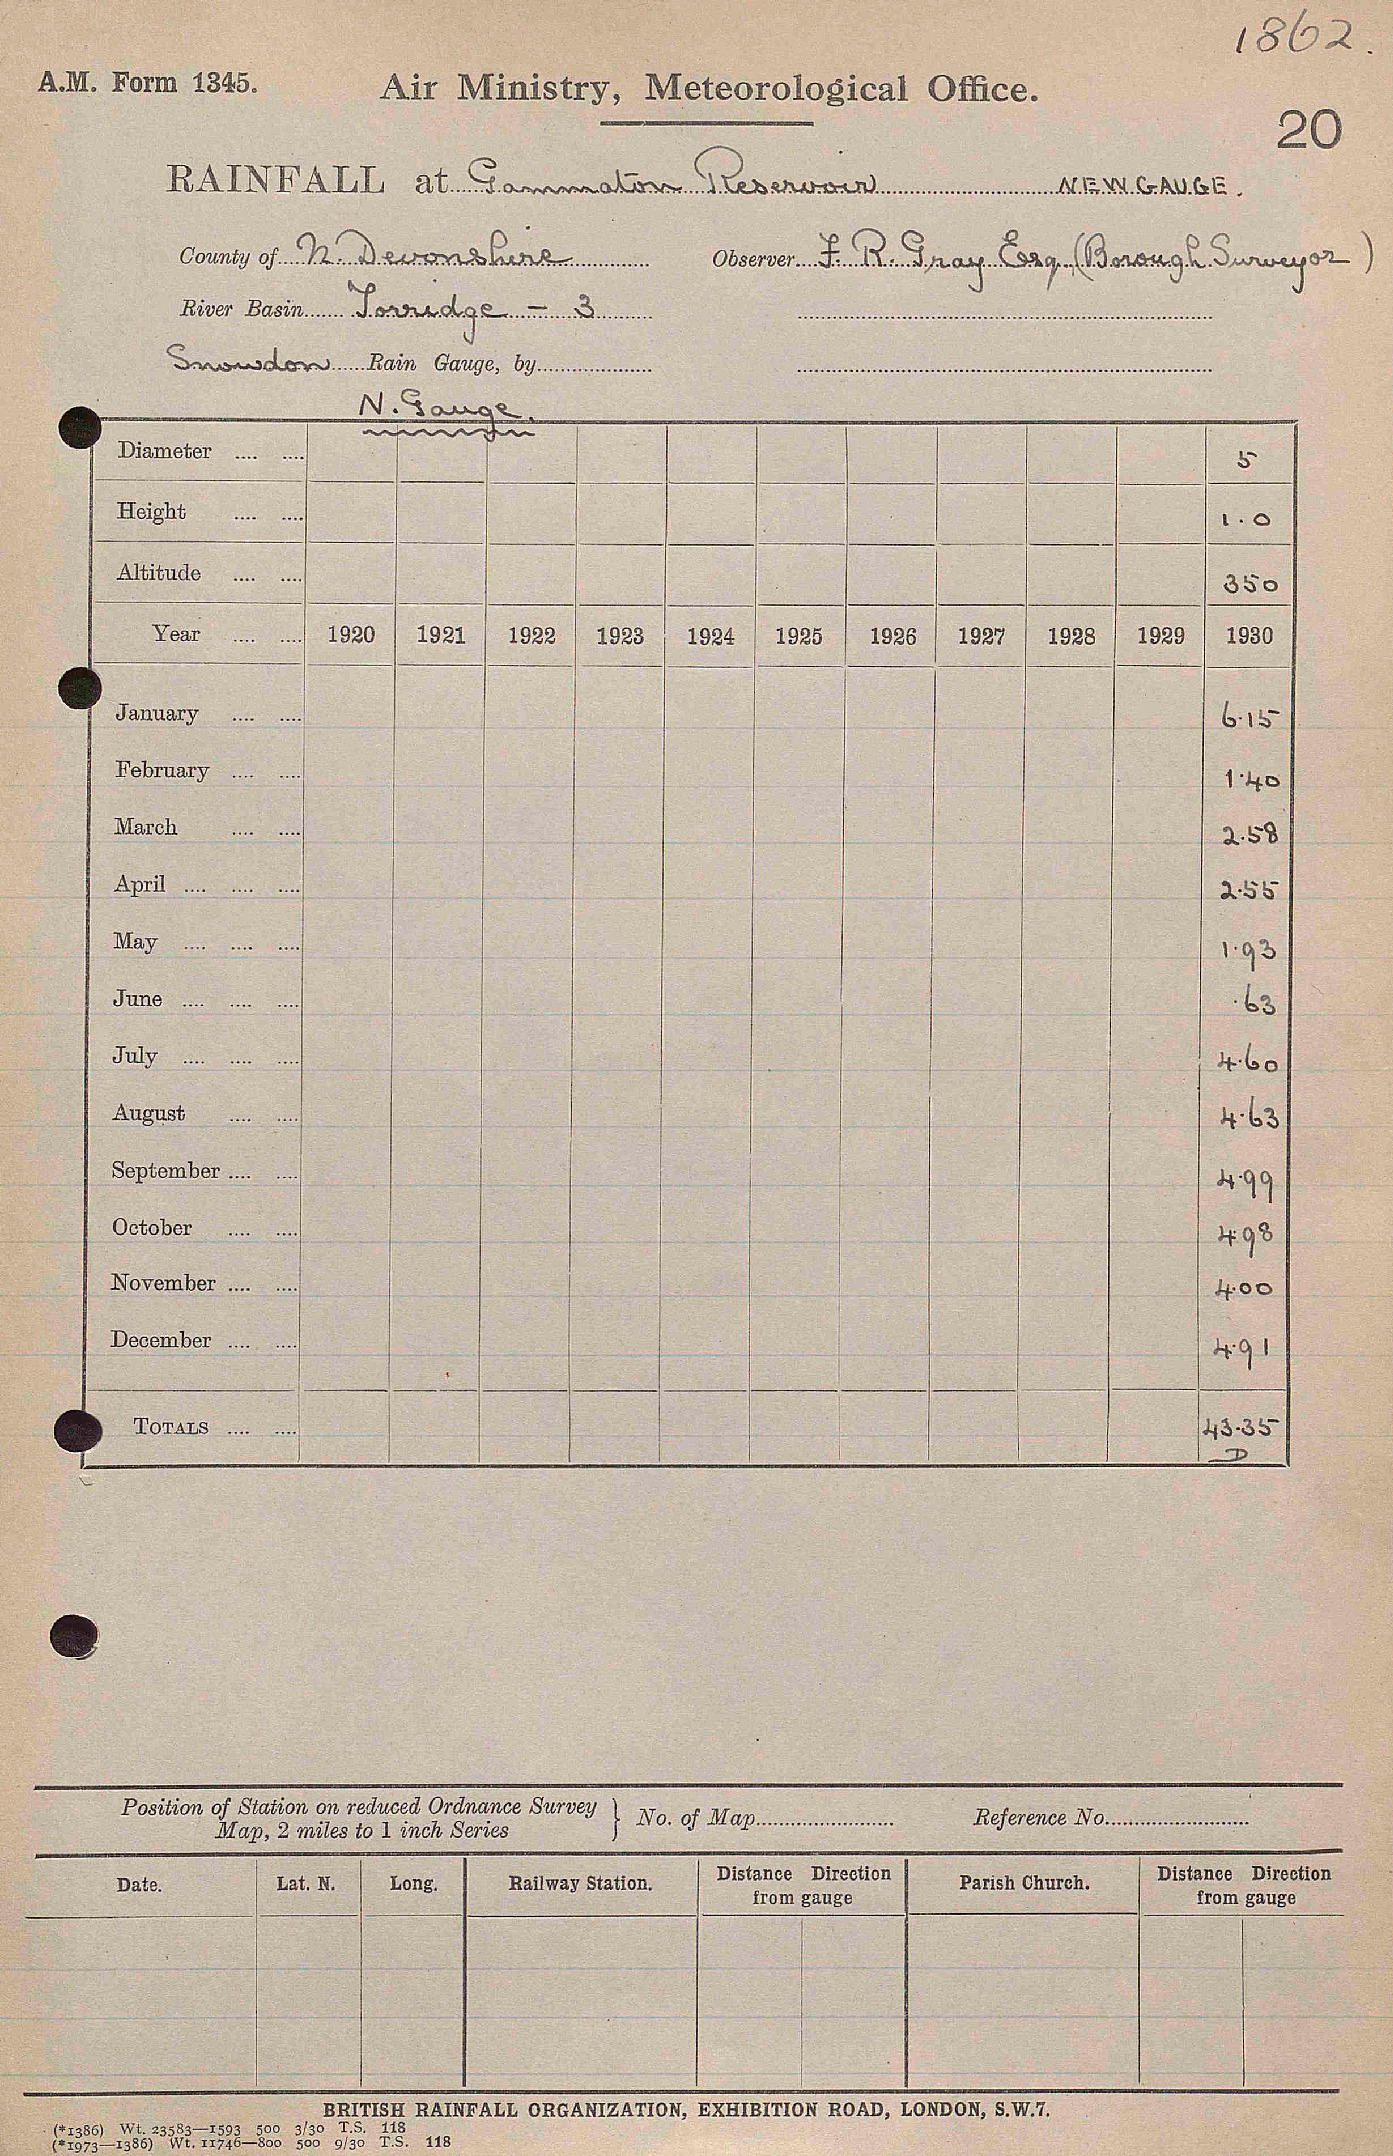 1862.
A.M. Form 1345. Air Ministry, Meteorological Office.
20
RAINFALL at Gammaton Reservoir NEW GAUGE.
County of N. Devonshire Observer F. R. Gray Esq. (Borough Surveyor)
River Basin Torridge - 3
Snowdon Rain Gauge, by
N. Gauge.
Diameter .... .... 5
Height .... .... 1.0
Altitude .... .... 350
Year .... .... 1920 1921 1922 1923 1924 1925 1926 1927 1928 1929 1930
January .... .... 6.15
February .... .... 1.40
March .... .... 2.58
April .... .... .... 2.55
May .... .... .... 1.93
June .... .... .... .63
July .... .... .... 4.60
August .... .... 4.63
September .... .... 4.99
October .... .... 4.98
November .... .... 4.00
December .... .... 4.91
TOTALS .... .... 43.35
D
Position of Station on reduced Ordnance Survey
Map, 2 miles to 1 inch Series } No. of Map Reference No.
Date. Lat. N. Long. Railway Station. Distance Direction from gauge Parish Church. Distance Direction from gauge
BRITISH RAINFALL ORGANIZATION, EXHIBITION ROAD, LONDON, S.W.7.
(*1386) Wt. 23583—1593 500 3/30 T.S. 118
(*1973—1386) Wt. 11746—800 500 9/30 T.S. 118